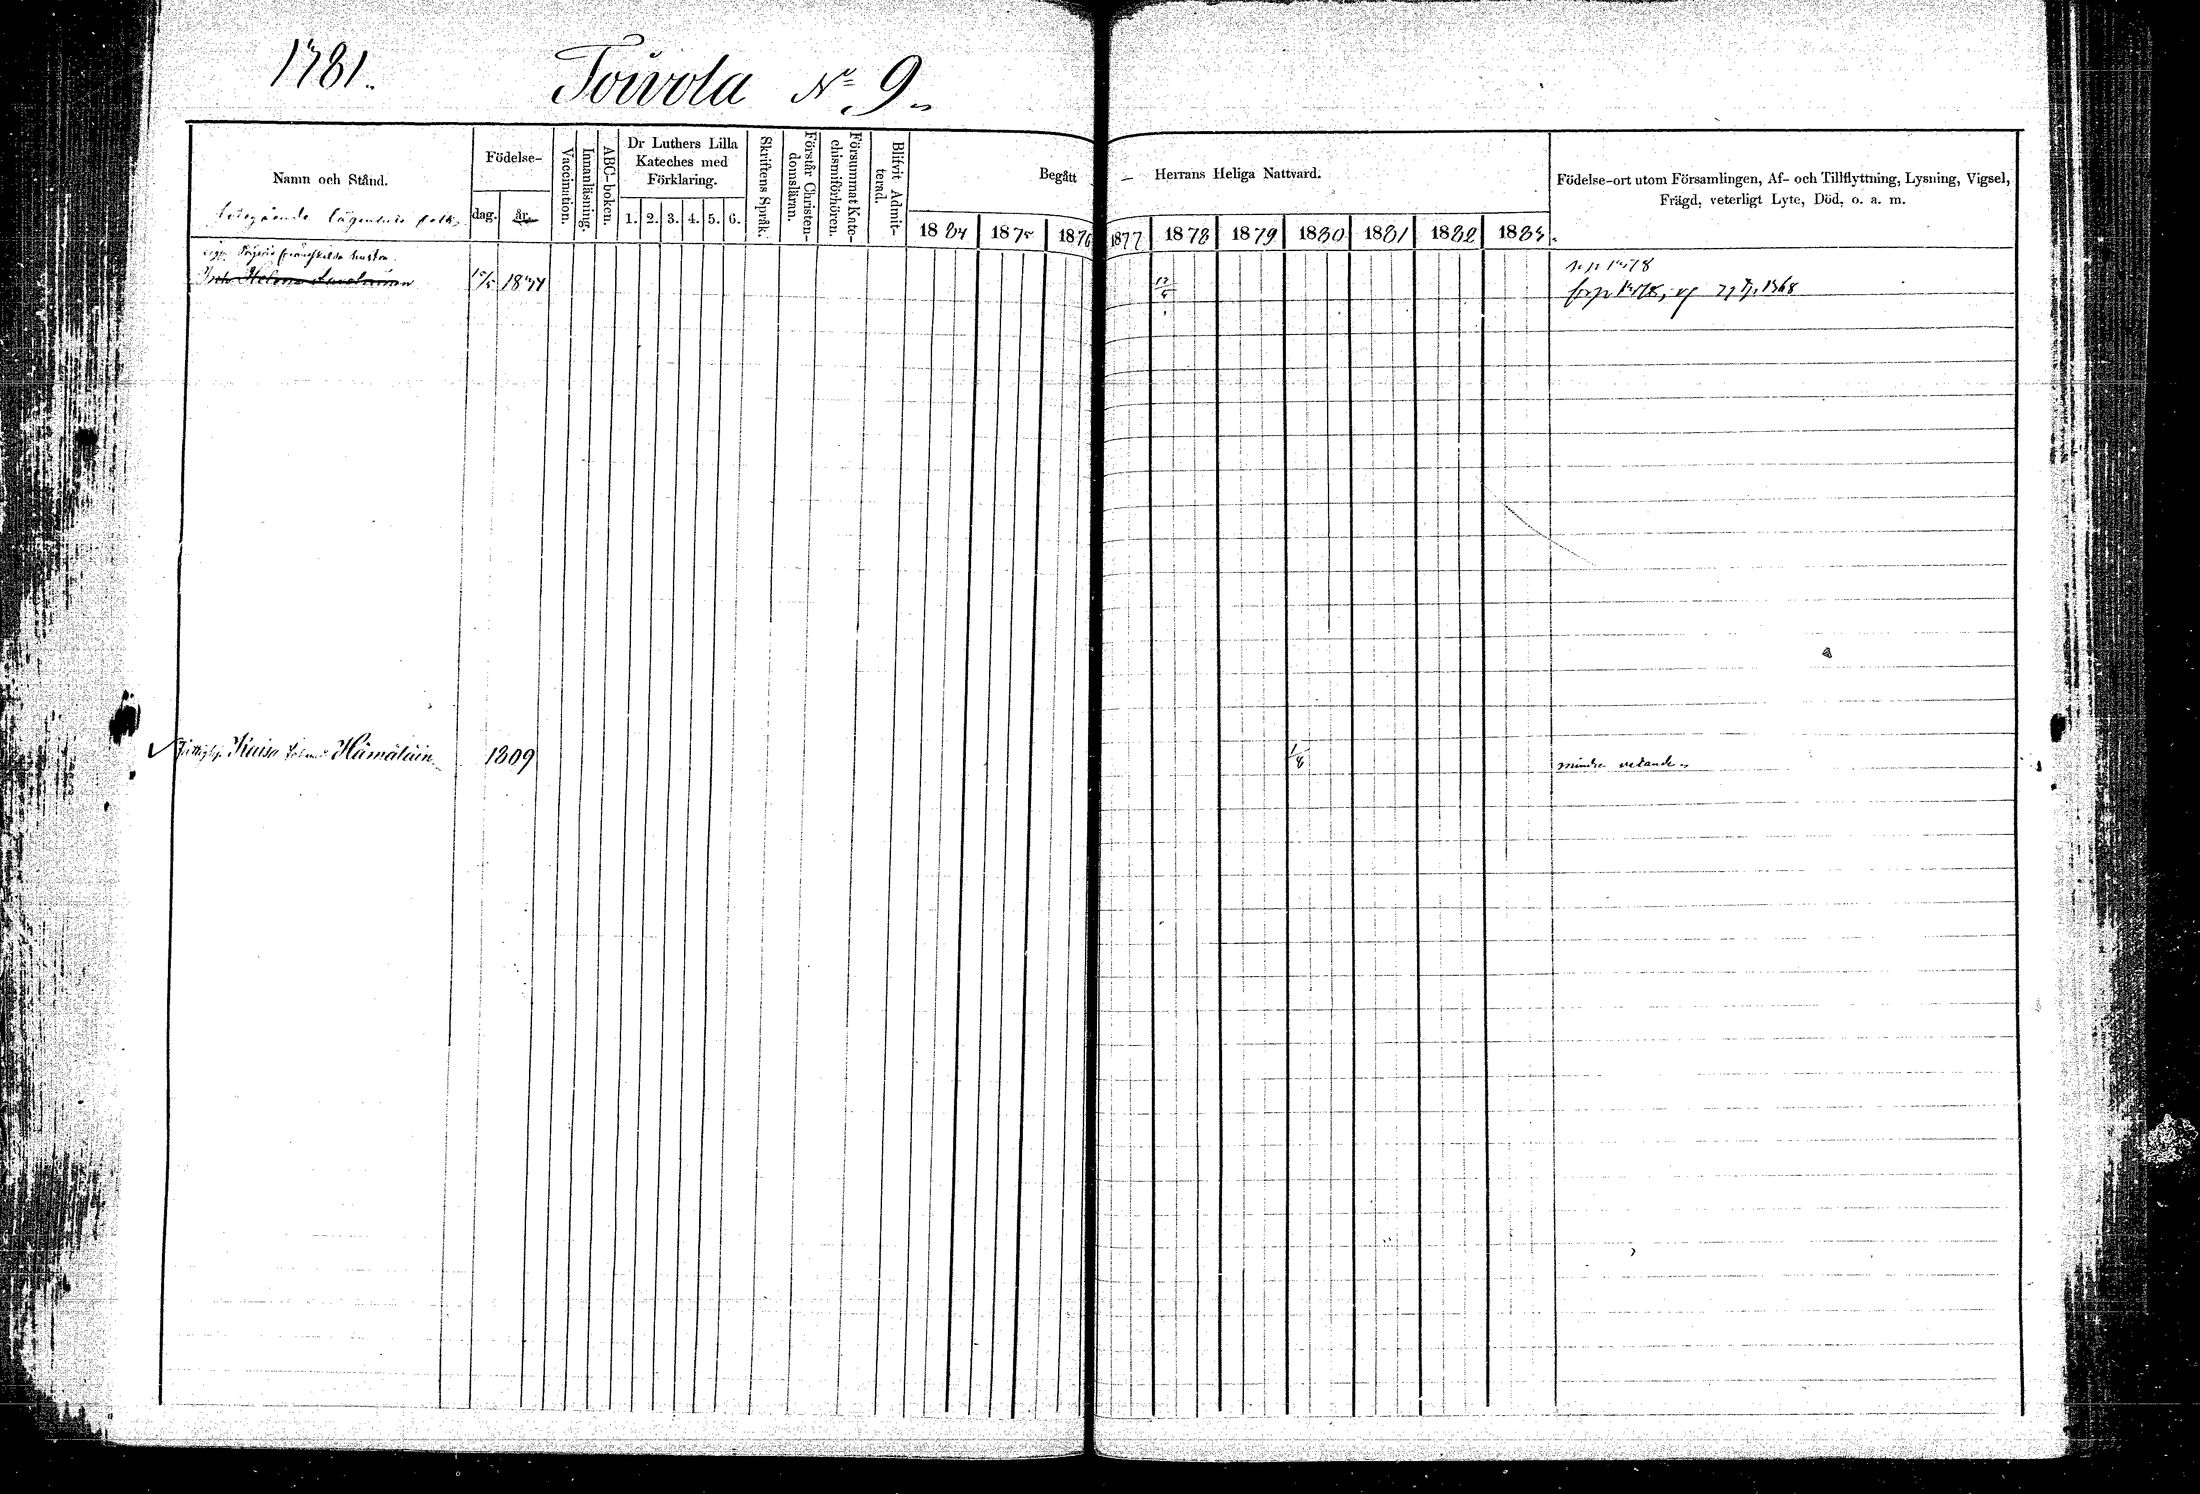 1781.
Toivola No 9.
Namn och Stånd.
Födelse-
dag.
år.
Vaccination.
Innanläsning.
ABC-boken.
Dr Luthers Lilla
Kateches med
Förklaring.
1. 2. 3. 4. 5. 6.
Skriftens Språk.
Förstår Christen-
domsläran.
Försummat Kate-
chismiförhören.
Blifvit Admit-
terad.
Begått — Herrans Heliga Nattvard.
1875 1876 1877 1878 1879 1880 1881 1882 1883.
Födelse-ort utom Församlingen, Af- och Tillflyttning, Lysning, Vigsel,
Frägd, veterligt Lyte, Död, o. a. m.
lägenhets folk.
frånskilda hustru.
Helena
12/5
1868
Kaisa Hämäläin
1809
1/8
mindre vetande.